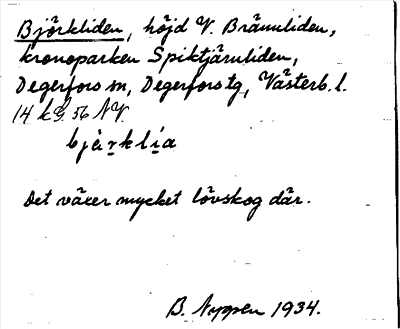 Björkliden, höjd V. Brännliden,
kronoparken Spiktjärnliden,
Degerfors sn, Degerfors tg, Västerb. l.
14 kG. 56 NV.
bjärklia
Det växer mycket lövskog där.
B. Nyssen 1934.